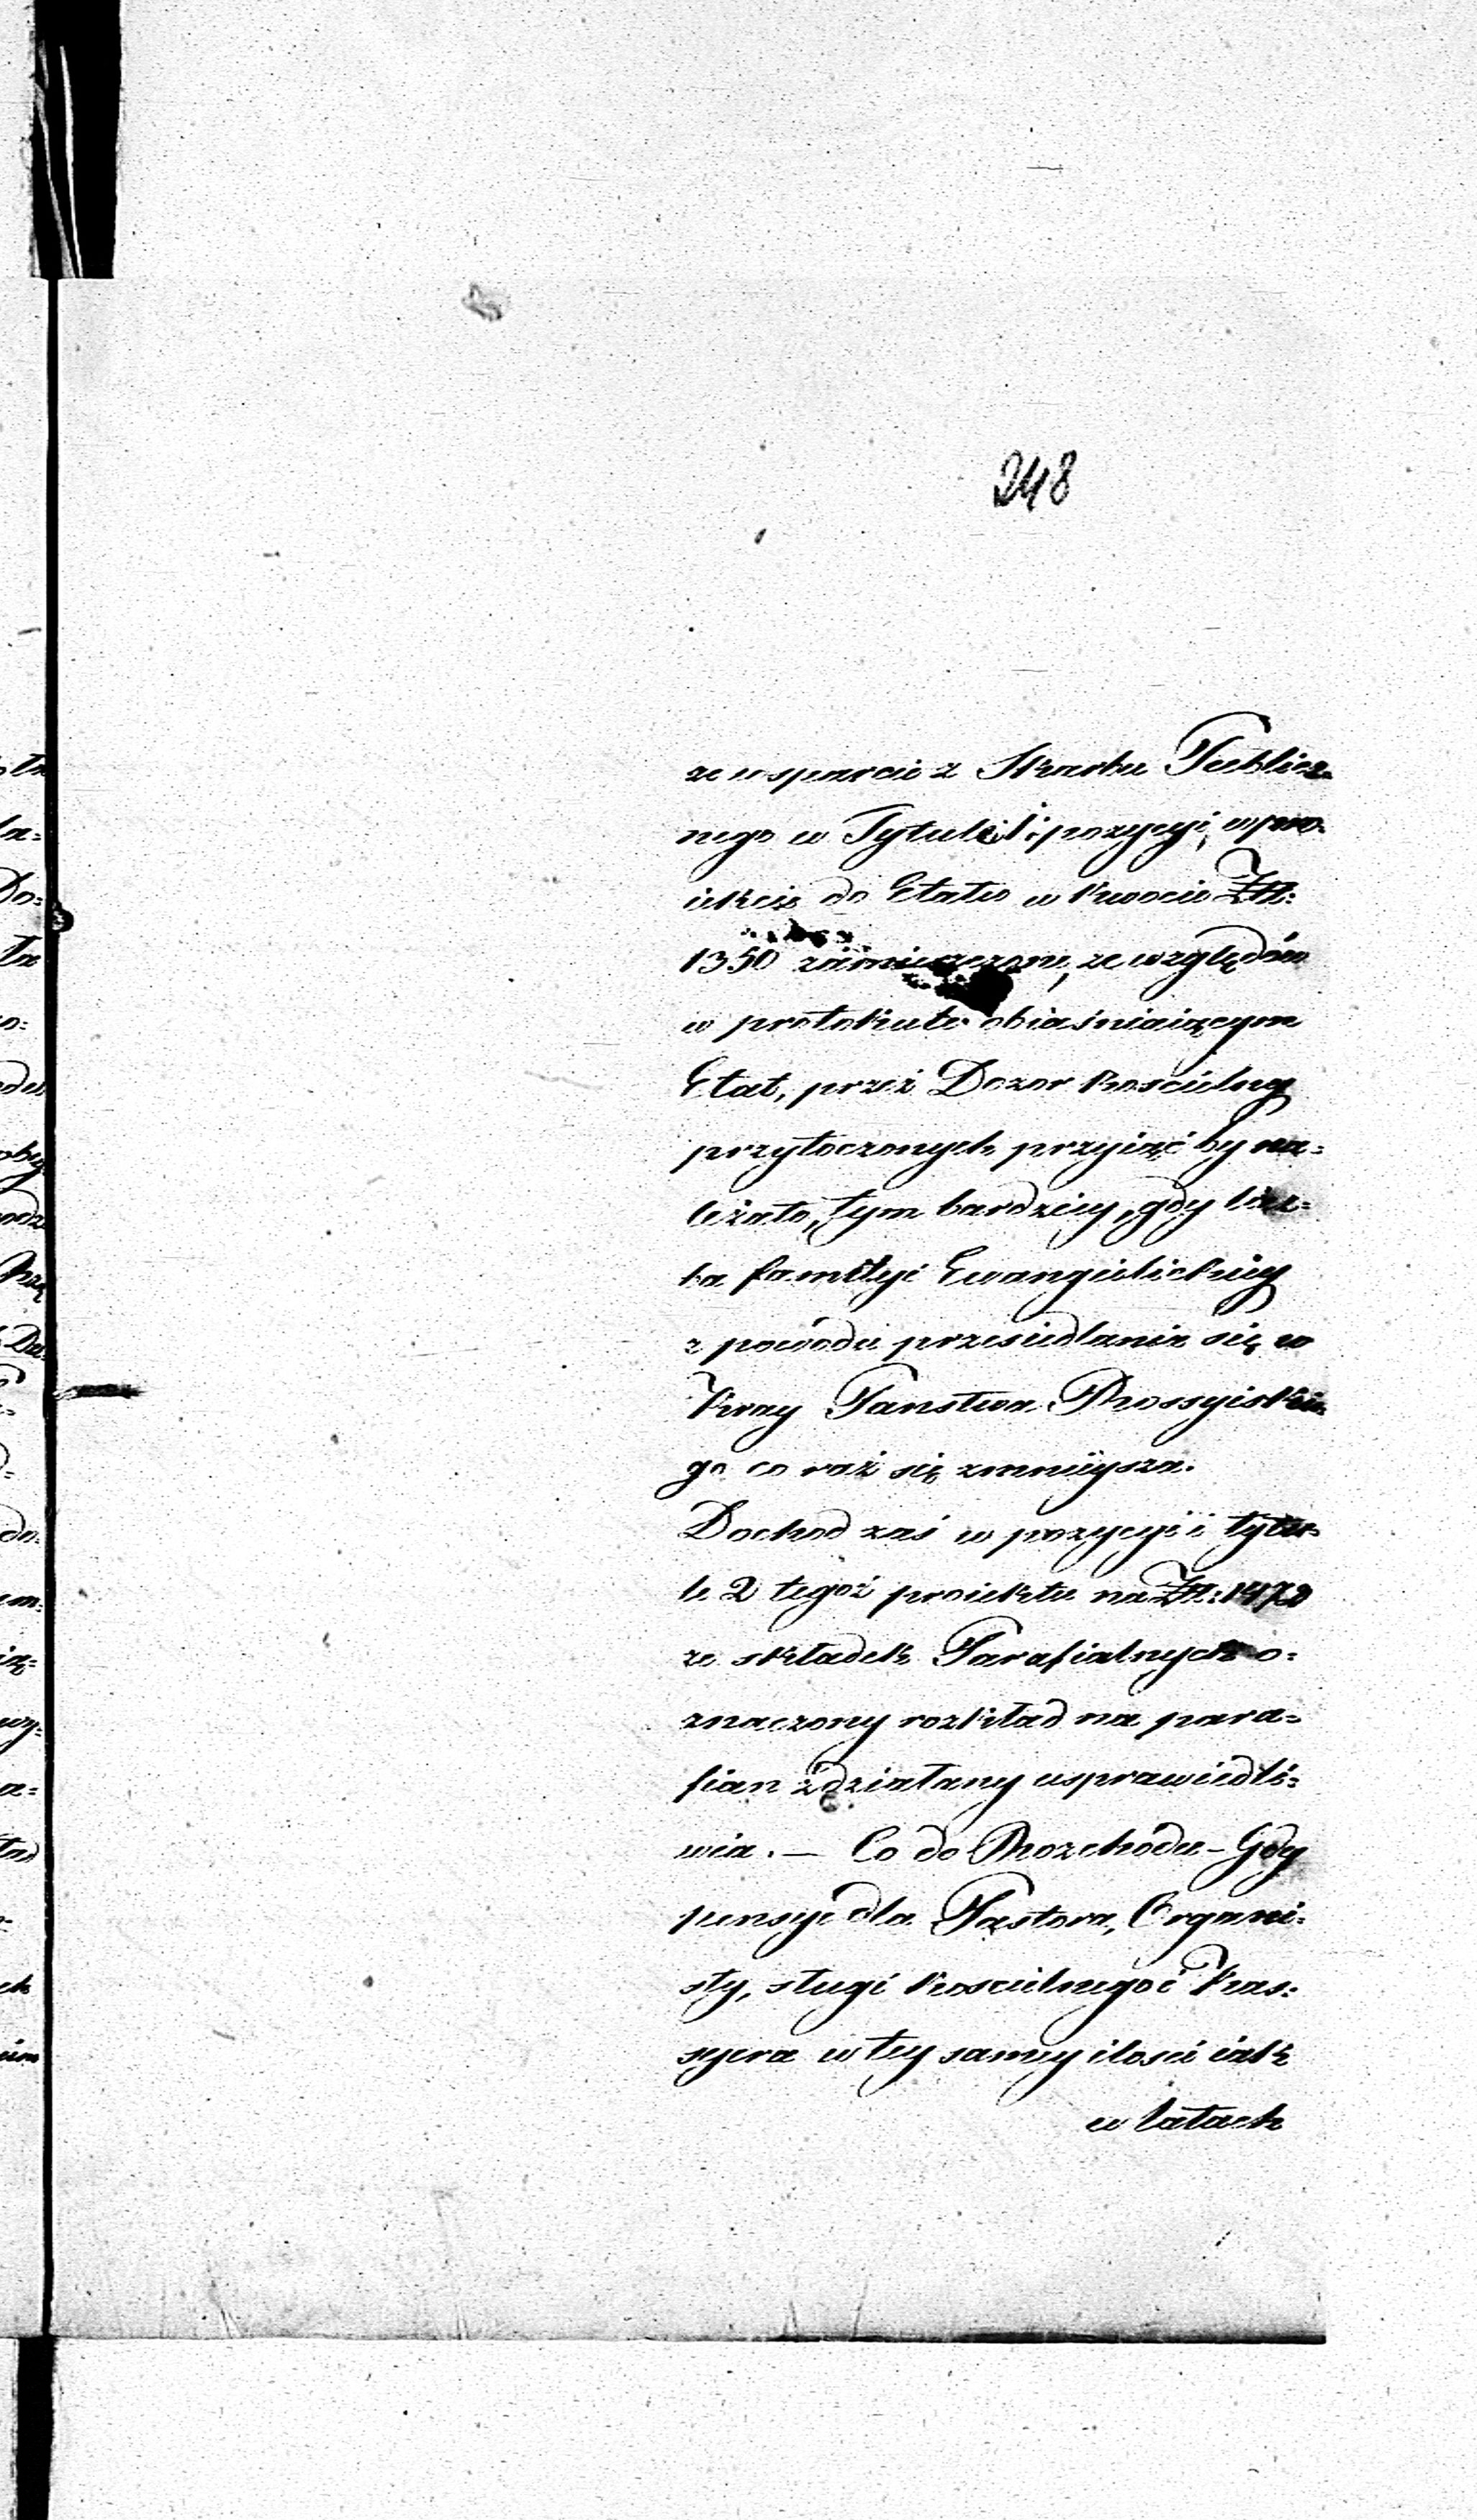 248
ze wsparcie z Skarbu Publicz=
nego w Tytule 1 i pozycyi, w pro=
iekcie do Etatu w kwocie Złł:
1350 zamieszczone, ze względów
w protokule obiaśniaiącym
Etat, przez Dozor koscielny
przytoczonych przyiąć by na=
leżało, tym bardziey, gdy licz=
ba familyi Ewangielickiey
z powodu przesiedlania się w
kray Panstwa Rossyiskie=
go co raz się zmnieysza.
Dochod zaś w pozycyi i tytu=
le 2 tegoż proiektu na Złł: 1472
ze składek Parafialnych o=
znaczony rozkład na para=
fian zdziałany usprawiedli=
wia. — Co do Rozchodu - Gdy
pensye dla Pastora, Organi=
sty, sługi koscielnego i kas=
syera w tey samey ilości iak
w latach